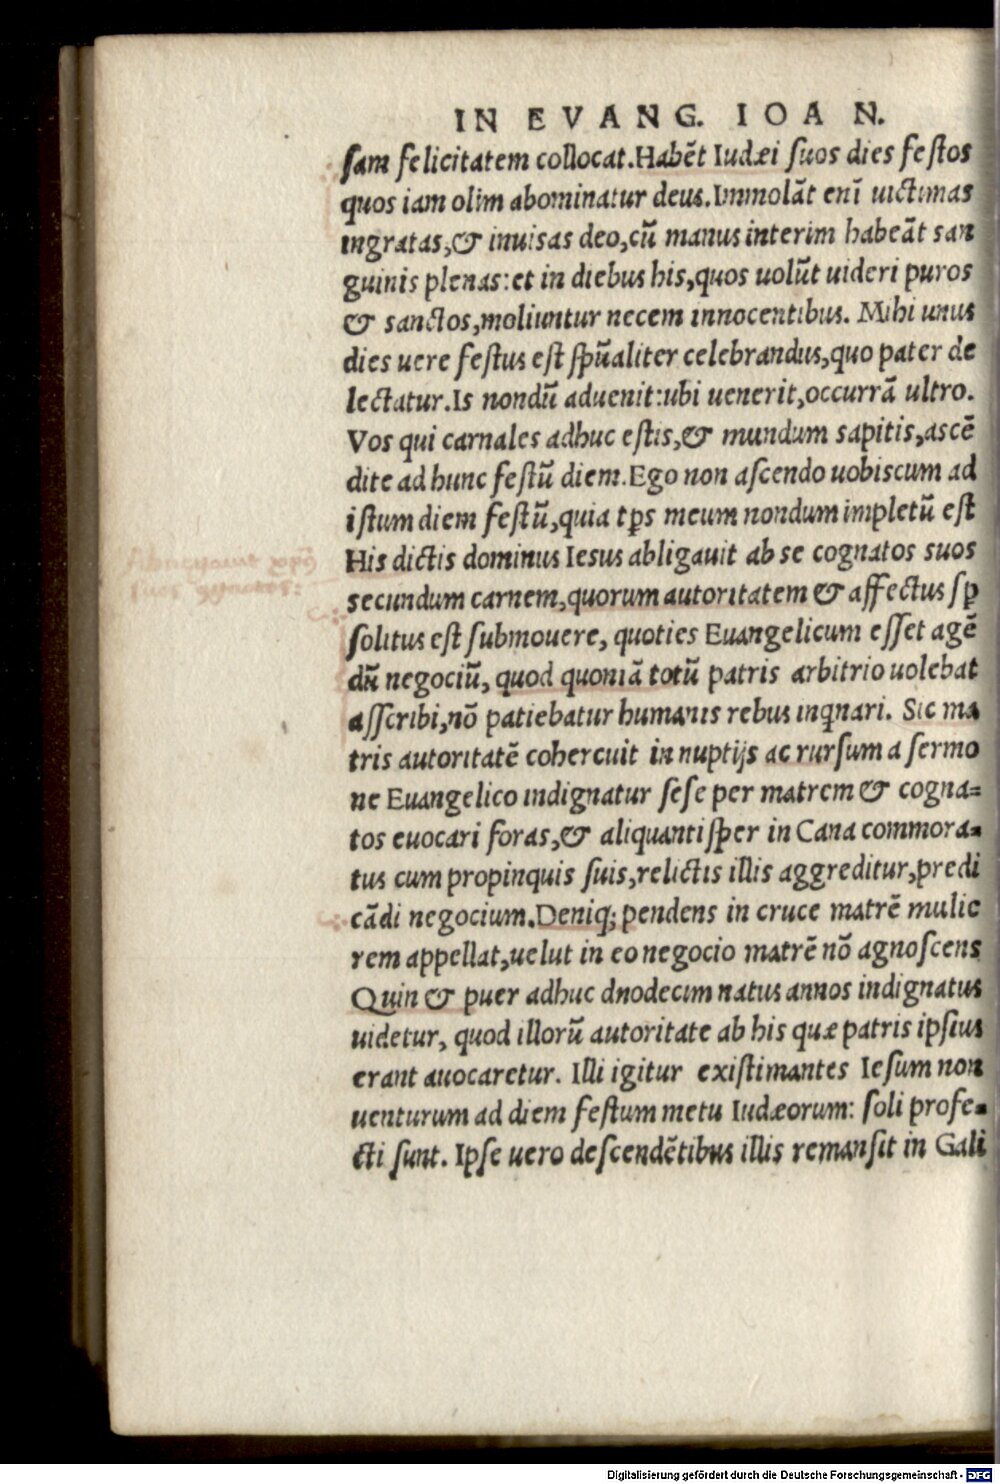 IN EVANG. IOAN.
sam felicitatem collocat. Habēt Iudæi suos dies festos
quos iam olim abominatur deus. Immolāt enī uictimas
ingratas, & inuisas deo, cū manus interim habeāt san
guinis plenas: et in diebus his, quos uolūt uideri puros
& sanctos, moliuntur necem innocentibus. Mihi unus
dies uere festus est spūaliter celebrandus, quo pater de
lectatur. Is nondū aduenit: ubi uenerit, occurrā ultro.
Vos qui carnales adhuc estis, & mundum sapitis, ascē
dite ad hunc festū diem. Ego non ascendo uobiscum ad
istum diem festū, quia tps meum nondum impletū est
His dictis dominus Iesus abligauit ab se cognatos suos
secundum carnem, quorum autoritatem & affectus sꝑ
solitus est submouere, quoties Euangelicum esset agē
dū negociū, quod quoniā totū patris arbitrio uolebat
asscribi, nō patiebatur humanis rebus inqnari. Sic ma
tris autoritatē cohercuit in nuptijs ac rursum a sermo
ne Euangelico indignatur sese per matrem & cogna=
tos euocari foras, & aliquantisper in Cana commora=
tus cum propinquis suis, relictis illis aggreditur, predi
cādi negocium. Deniq; pendens in cruce matrē mulie
rem appellat, uelut in eo negocio matrē nō agnoscens
Quin & puer adhuc dnodecim natus annos indignatus
uidetur, quod illorū autoritate ab his quæ patris ipsius
erant auocaretur. Illi igitur existimantes Iesum non
uenturum ad diem festum metu Iudæorum: soli profe=
cti sunt. Ipse uero descendētibus illis remansit in Gali
Digitalisierung gefördert durch die Deutsche Forschungsgemeinschaft - DFG